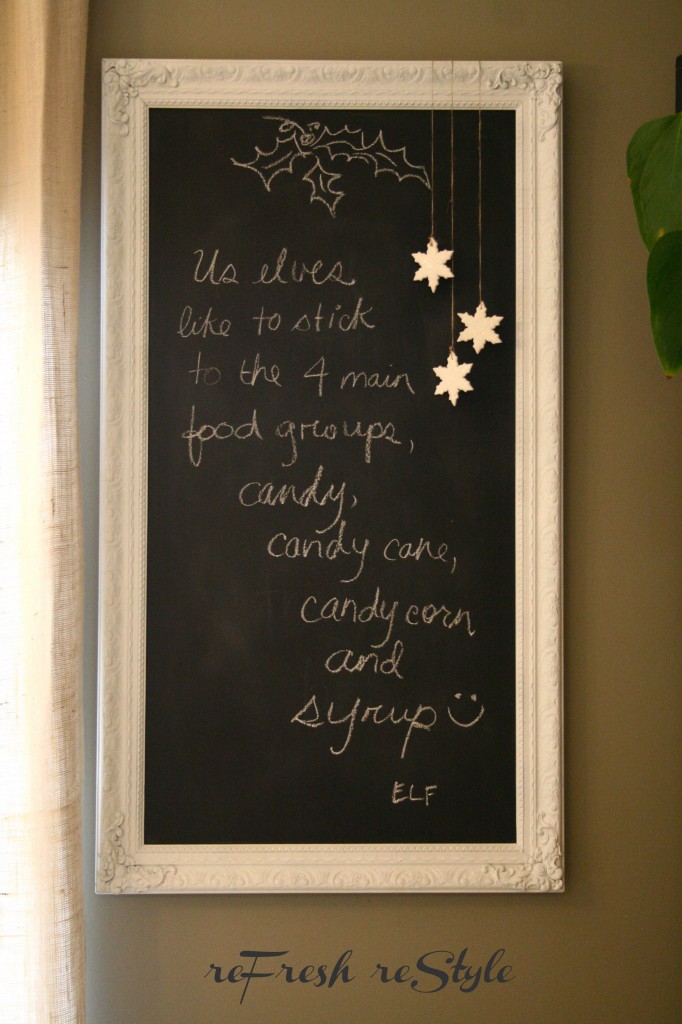 Us elves
like to stick
to the 4 main
food groups,
candy,
candy cane,
candy corn
and
syrup
ELF
reFresh reStyle